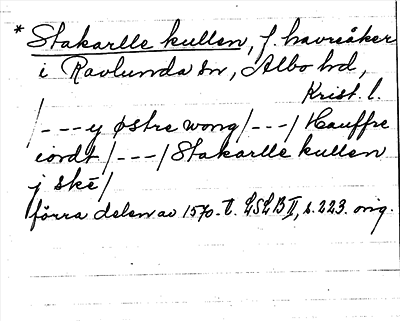 * Stakarlle kullen, f. havresåker
i Ravlunda sn, Albo hd,
Krist. l.
/---y østre wong/---/ Hauffre
iordt/---/Stakarlle kullen
j skē/
förra delen av 1570-t. LSLB II, s. 223. orig.